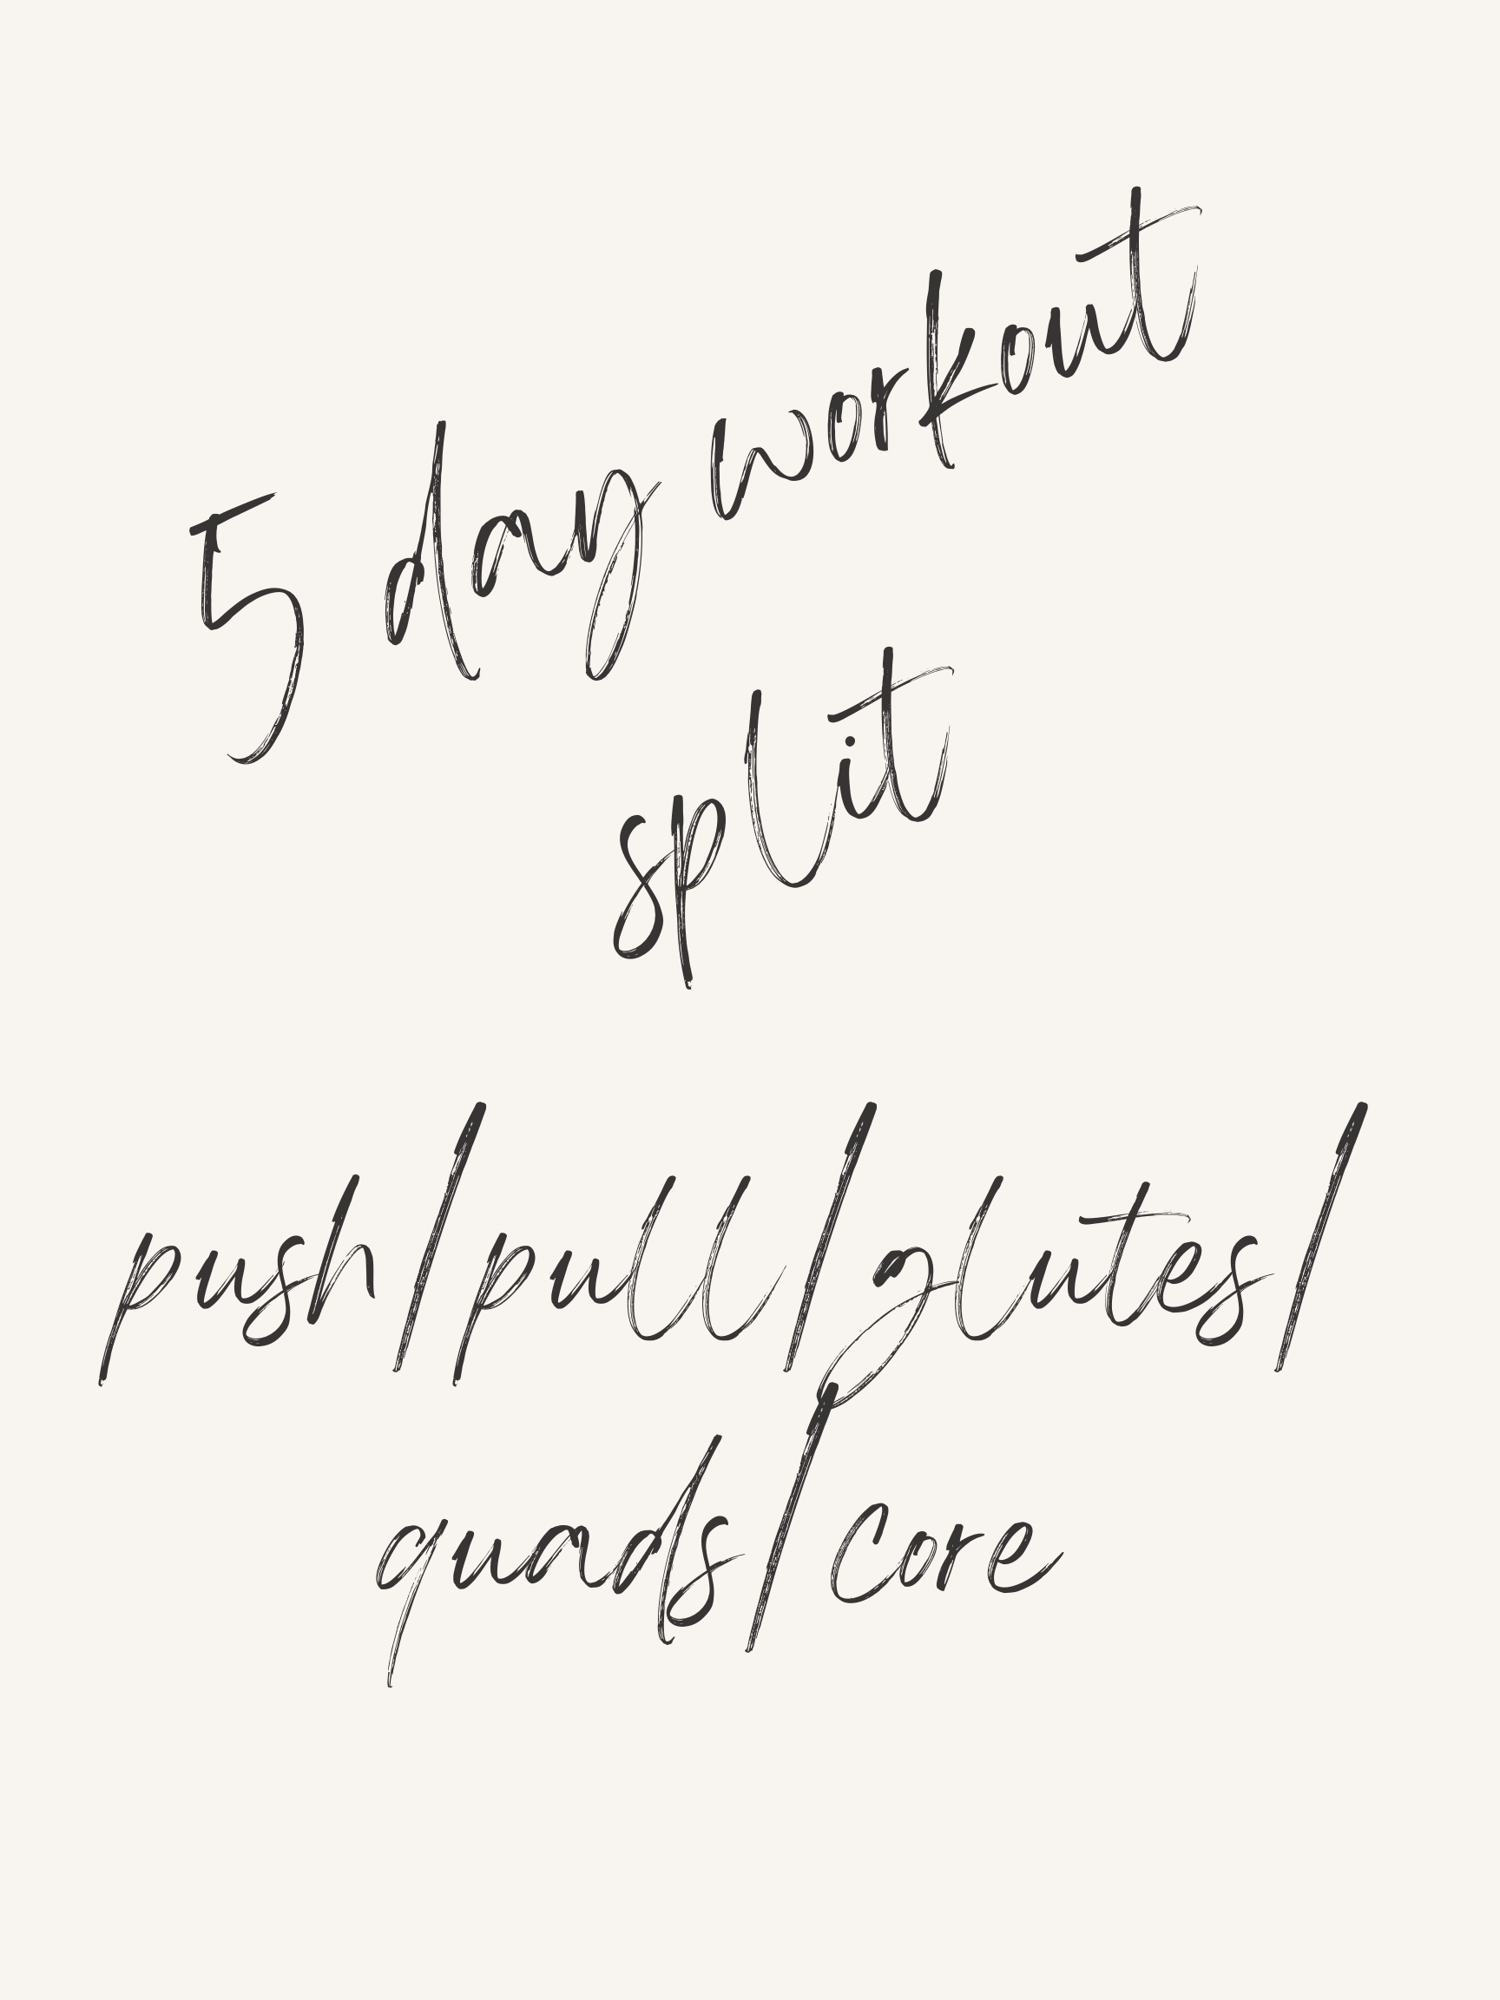 5 day workout
split
push/pull/glutes/
quads/core